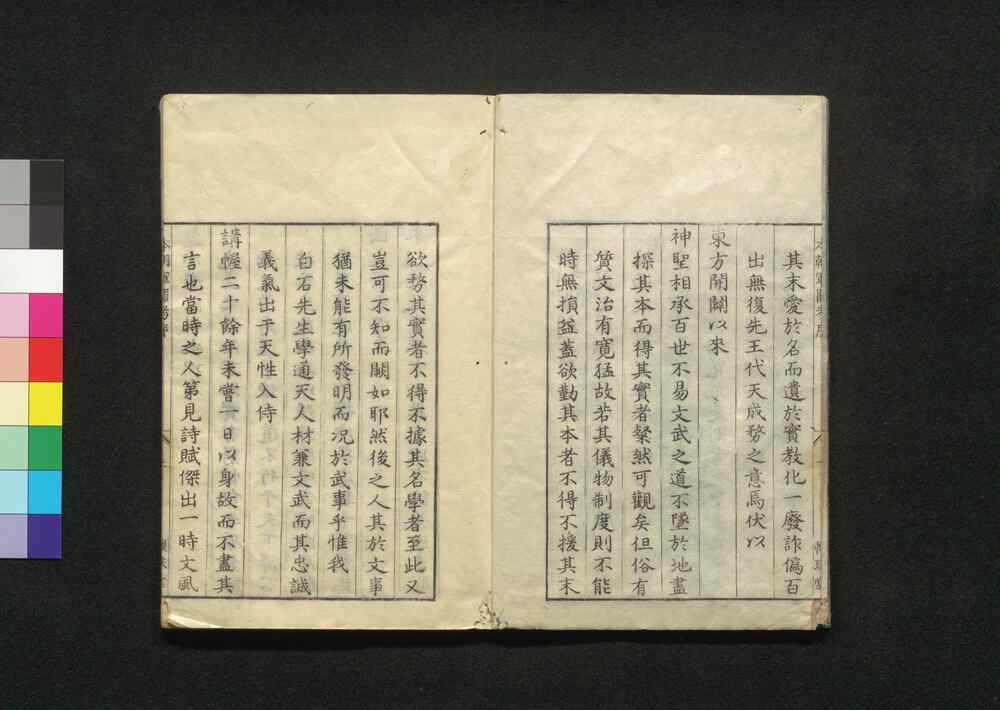 其末愛於名而遺於實教化一廢詐偽百
出無復先王代天成務之意焉伏以
東方開闢以來
神聖相承百世不易文武之道不墜於地盡
探其本而得其實者粲然可觀矣但俗有
質文治有寬猛故若其儀物制度則不能
時無損益蓋欲勤其本者不得不援其末
欲務其實者不得不據其名學者至此又
豈可不知而闕如耶然後之人其於文事
猶未能有所發明而況於武事乎惟我
白石先生學通天人材兼文武而其忠誠
義氣出于天性入侍
講幄二十餘年未嘗一日以身故而不盡其
言也當時之人第見詩賦傑出一時文風